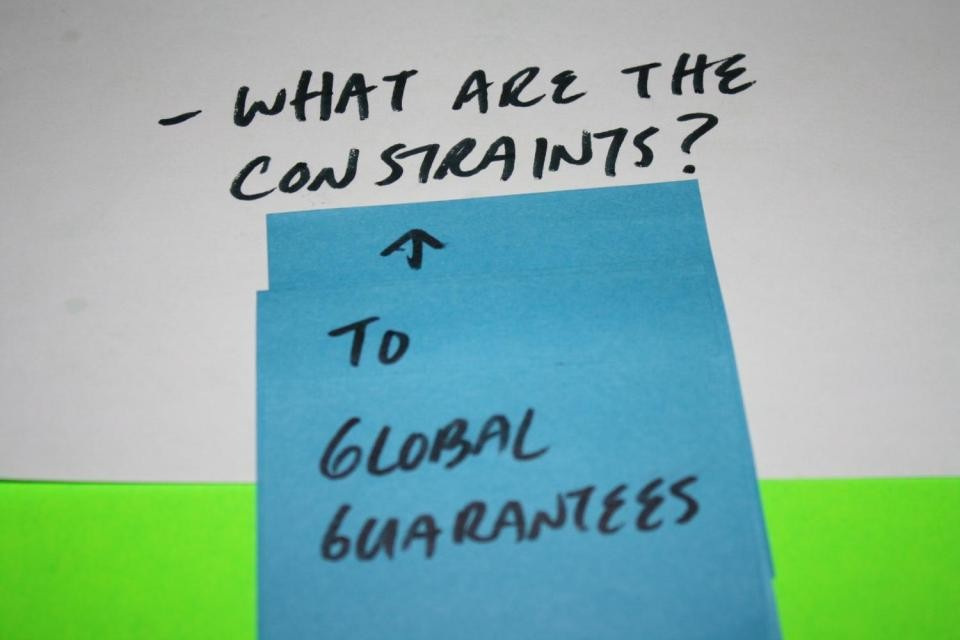 - WHAT ARE THE
CONSTRAINTS?
↑
TO
GLOBAL
GUARANTEES